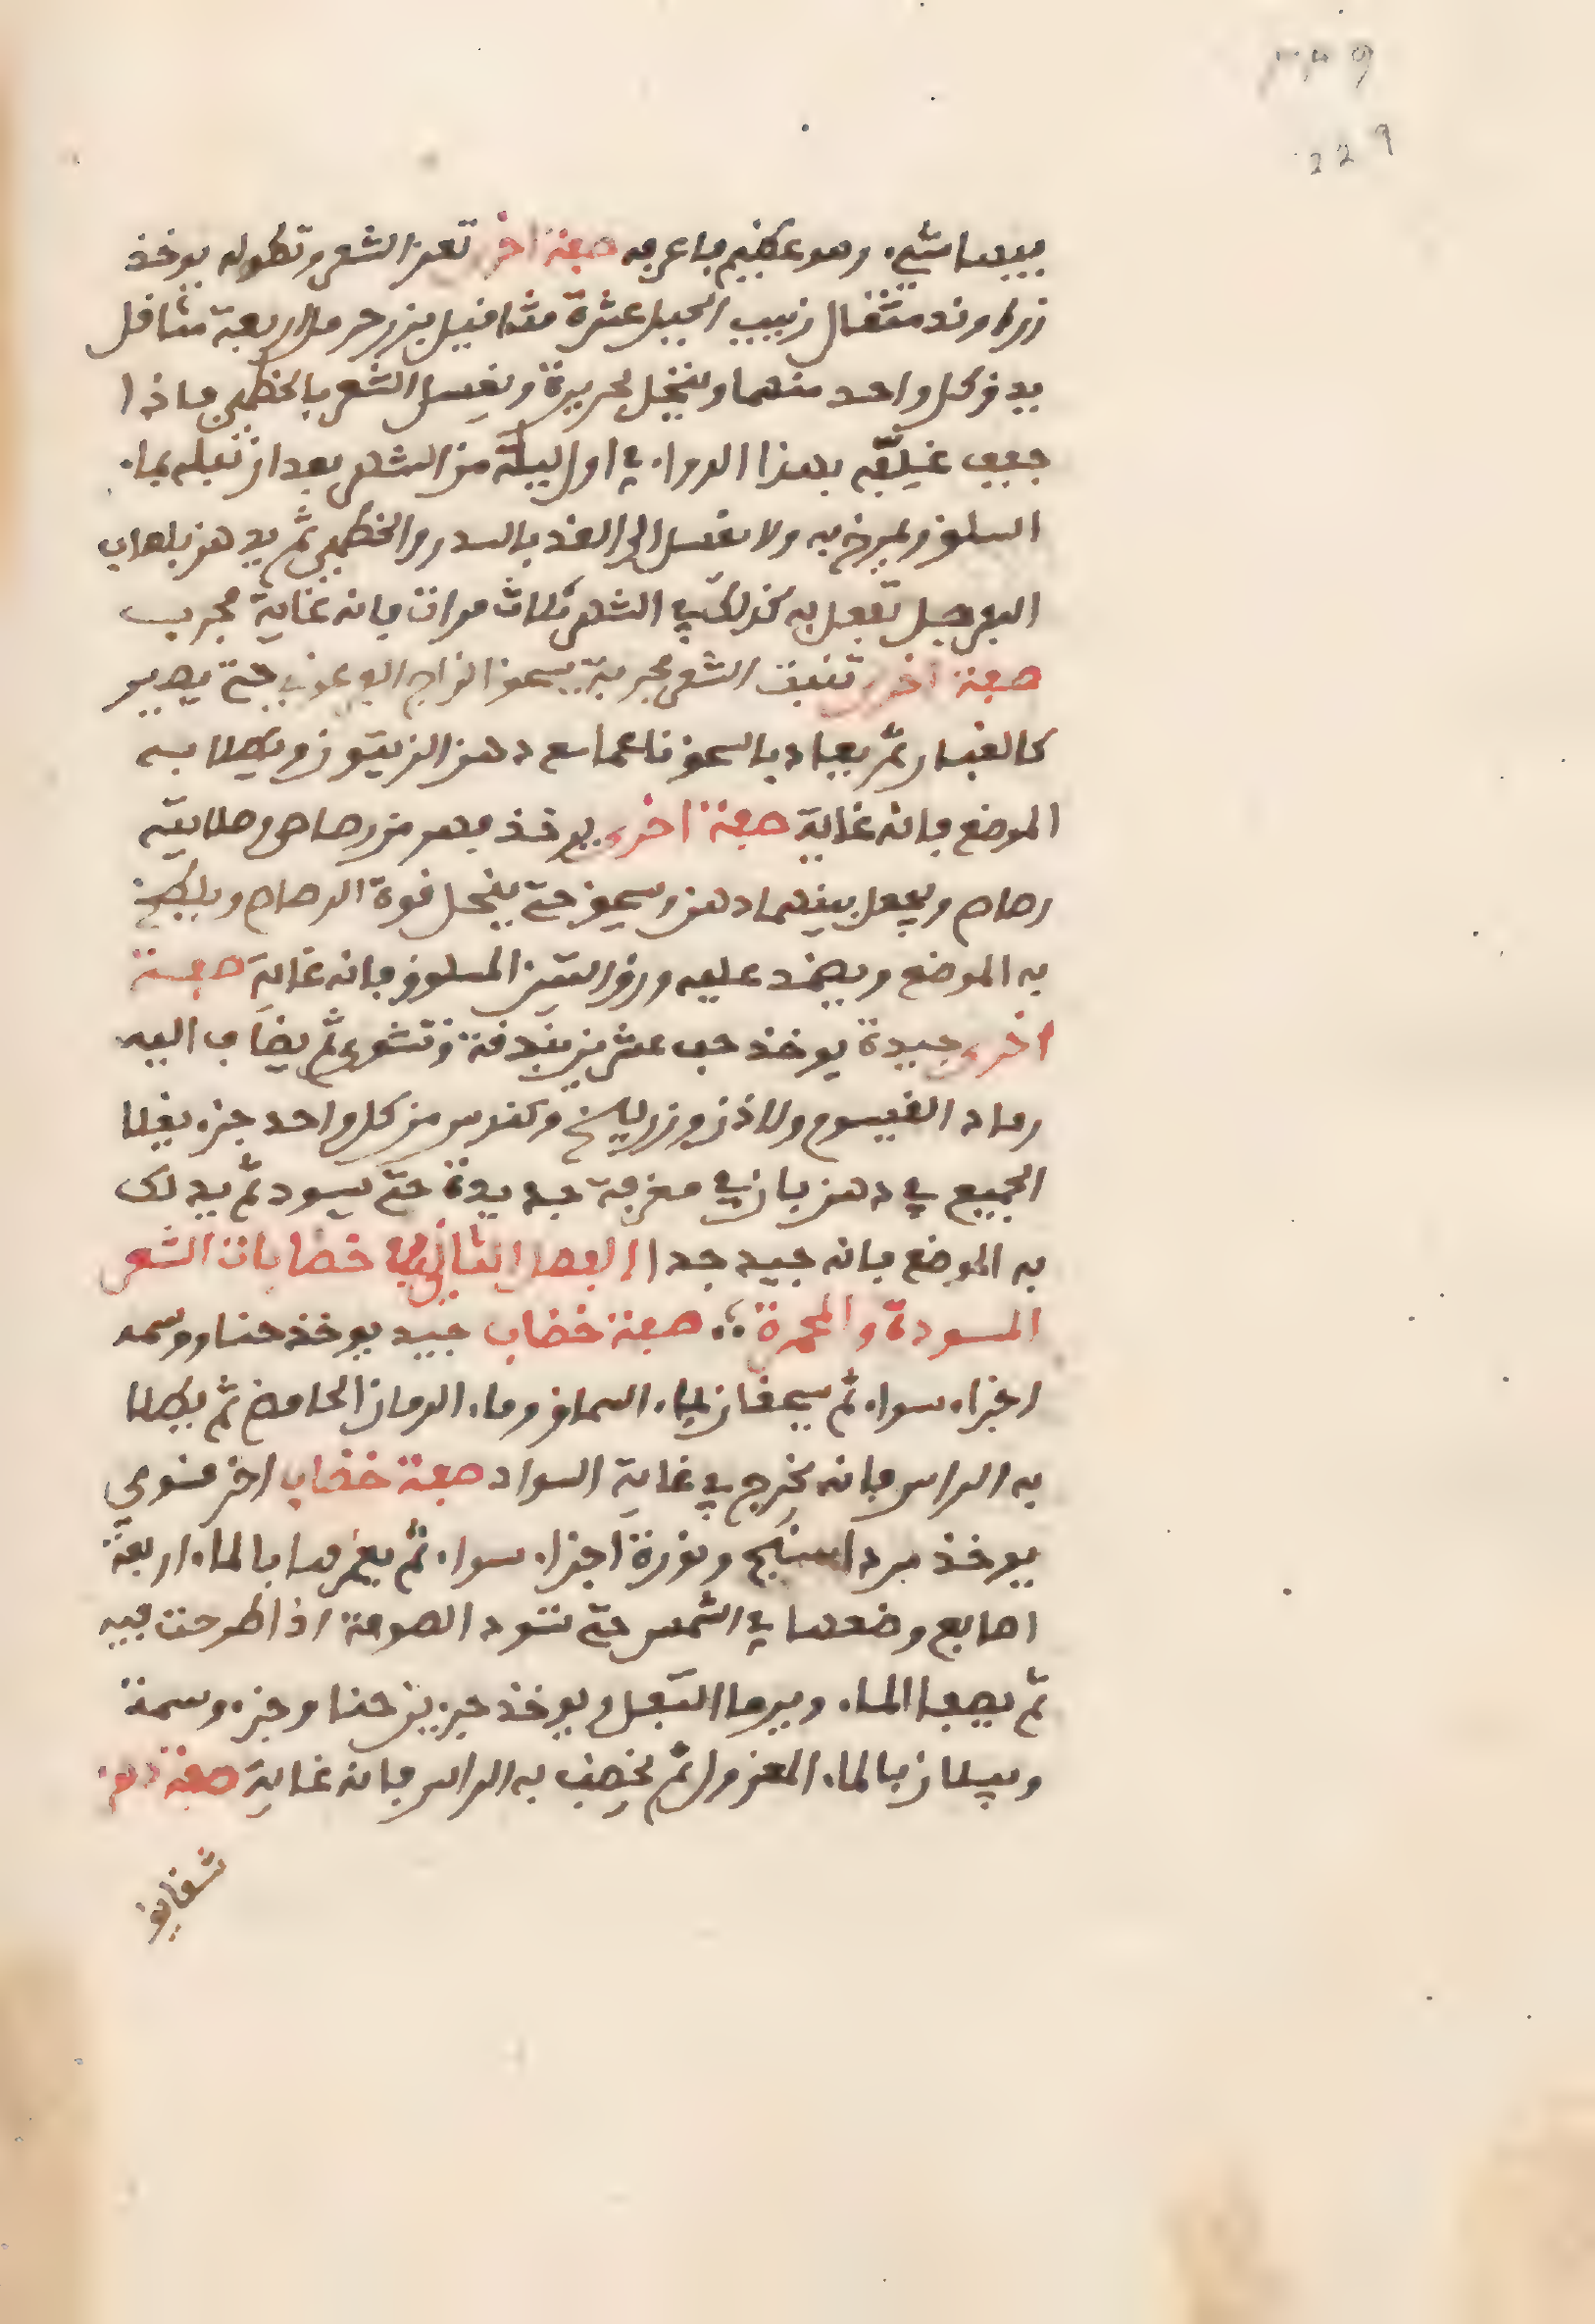 ٢٢٩
229
فيها شيء وهو عظيم فاعرفه صفة اخرى تغزر الشعر وتطوله يوخذ
زراوند مثقال زبيب الجبل عشرة مثاقيل بزر حرمل اربعة مثاقل
يدق كل واحد منهما وينخل بحريرة ويغسل الشعر بالخطمي فاذا
جفف غلفه بهذا الدواء في اول ليلة من الشهر بعد ان تبله بماء
السلق ويمرخ به ولا يغسل الى الغد بالسدر والخطمي ثم يدهن بلعاب
السفرجل تفعل به كذلك في الشهر ثلاث مرات فانه غاية مجرب
صفة اخرى تنبت الشعر مجربة يسحق الزاج حتى يصير
كالغبار ثم يعاد بالسحق ناعما مع دهن الزيتون ويطلا به
الموضع فانه غاية صفة اخرى يوخذ فهر من رصاص وصلاية
رصاص ويجعل بينهما دهن ويسحق حتى ينحل قوة الرصاص ويلطخ
به الموضع ويضمد عليه ورق التين المسلوق فانه غاية صفة
اخرى جيدة يوخذ عشرين بندقة وتشوى ثم يضاف اليه
رماد القيسوم ولاذن وزرنيخ وكندس من كل واحد جزء يغلا
الجميع في دهن بان في مغرفة جديدة حتى يسود ثم يدلك
به الموضع فانه جيد جدا الفصل الثاني في خضابات الشعر
المسودة والمحمرة صفة خضاب جيد يوخذ حنا ووسمه
اجزاء سواء ثم يسحقان بماء السماق وماء الرمان الحامض ثم يطلا
به الراس فانه يخرج في غاية السواد صفة خضاب اخر
يوخذ مرداسنج ونورة اجزاء سواء ثم يغمرها بالماء اربعة
اصابع وضعها في الشمس حتى تسود الصوفة اذا طرحت فيه
ثم يصفا الماء ويرما الثفل ويوخذ جزيين حنا وجزء وسمة
ويبلان بالماء المعزول ثم يخضب به الراس فانه غاية صفة دهن
شقايق